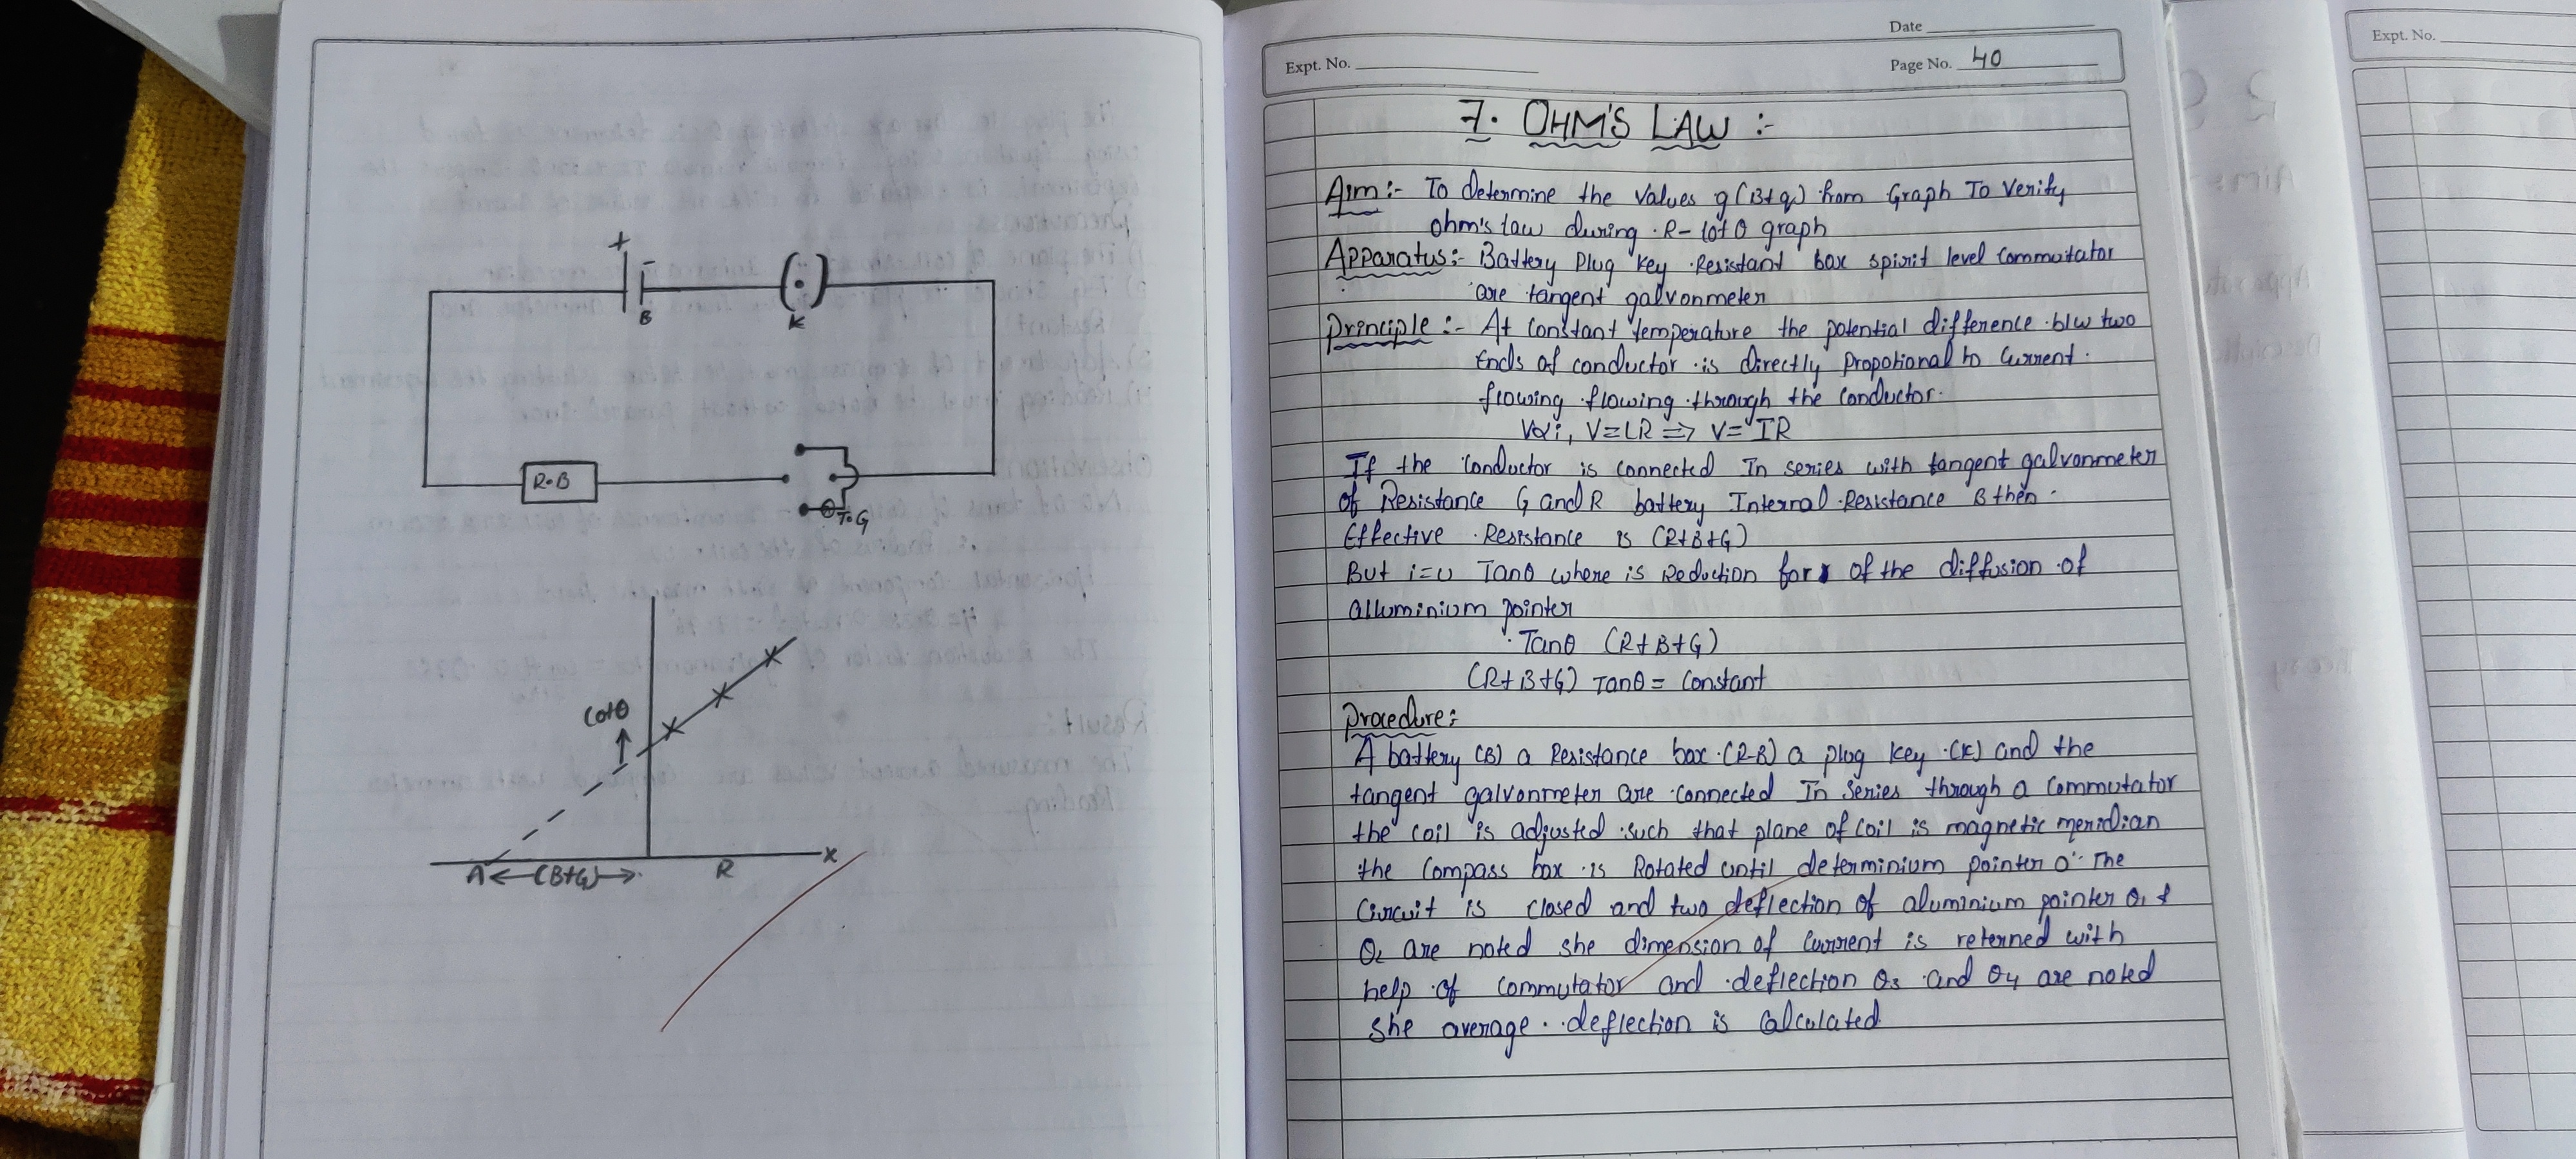 +
-
B
(•)
K
R·B
T·G
Cotθ
↑
A
(B+G)
R
x
Date
Expt. No.
Page No. 40
7. OHM'S LAW :-
Aim:- To determine the Values g(B+G) from Graph To Verify
ohm's law during R- Cot θ graph
Apparatus:- Battery Plug Key Resistant box spirit level Commutator
are tangent galvonmeter
Prenciple :- At Constant temperature the potential difference b/w two
Ends of conductor is directly Propotional to Current.
flowing flowing through the Conductor.
V∝i, V=LR => V= IR
If the Conductor is connected In series with tangent galvonmeter
of Resistance G and R battery Internal Resistance B then
Effective Resistance is (R+B+G)
But i=u Tanθ where is Reduction for of the diffusion of
alluminium pointer
Tanθ (R+B+G)
(R+B+G) Tanθ = Constant
Procedure:
A battery (B) a Resistance box (R-B) a plug key (K) and the
tangent galvonmeter are connected In Series through a Commutator
the coil is adjusted such that plane of coil is magnetic meridian
the Compass box is Rotated until determinium pointer 0° The
Circuit is closed and two deflection of aluminium pointer θ1 &
θ2 are noted she dimension of Current is reterned with
help of commutator and deflection θ3 and θ4 are noted
she average deflection is Calculated
Expt. No.